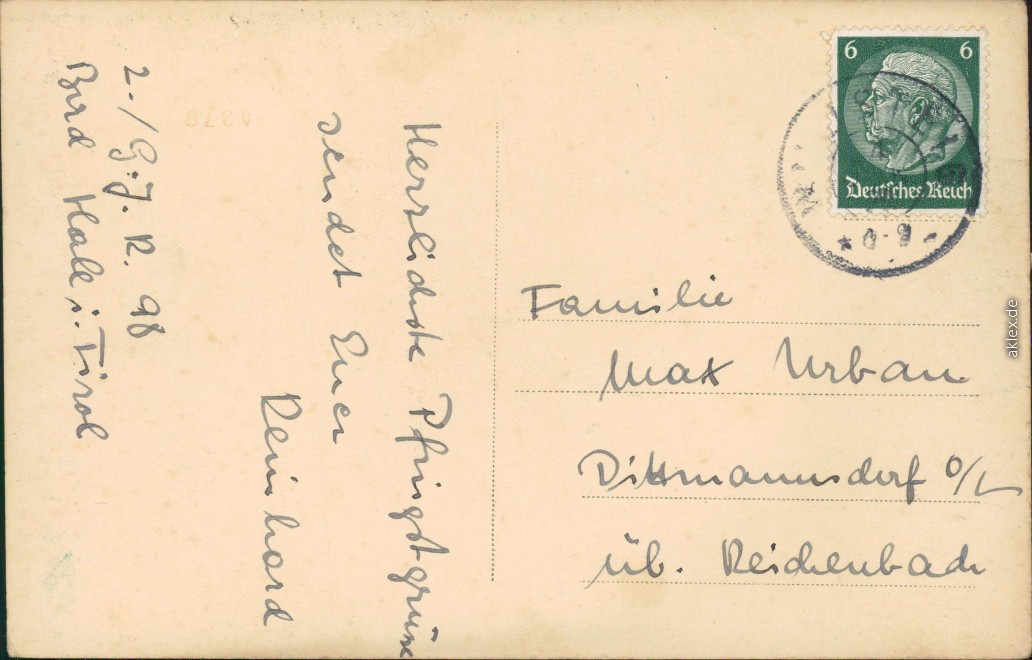 Herzlichste Pfingstgrüsse
sendet Euer
Reinhard
2./G.J.R. 98
Bad Hall i. Tirol
6 6
Deutsches Reich
Familie
Max Urban
Dittmannsdorf O/L
üb. Reichenbach
aklex.de